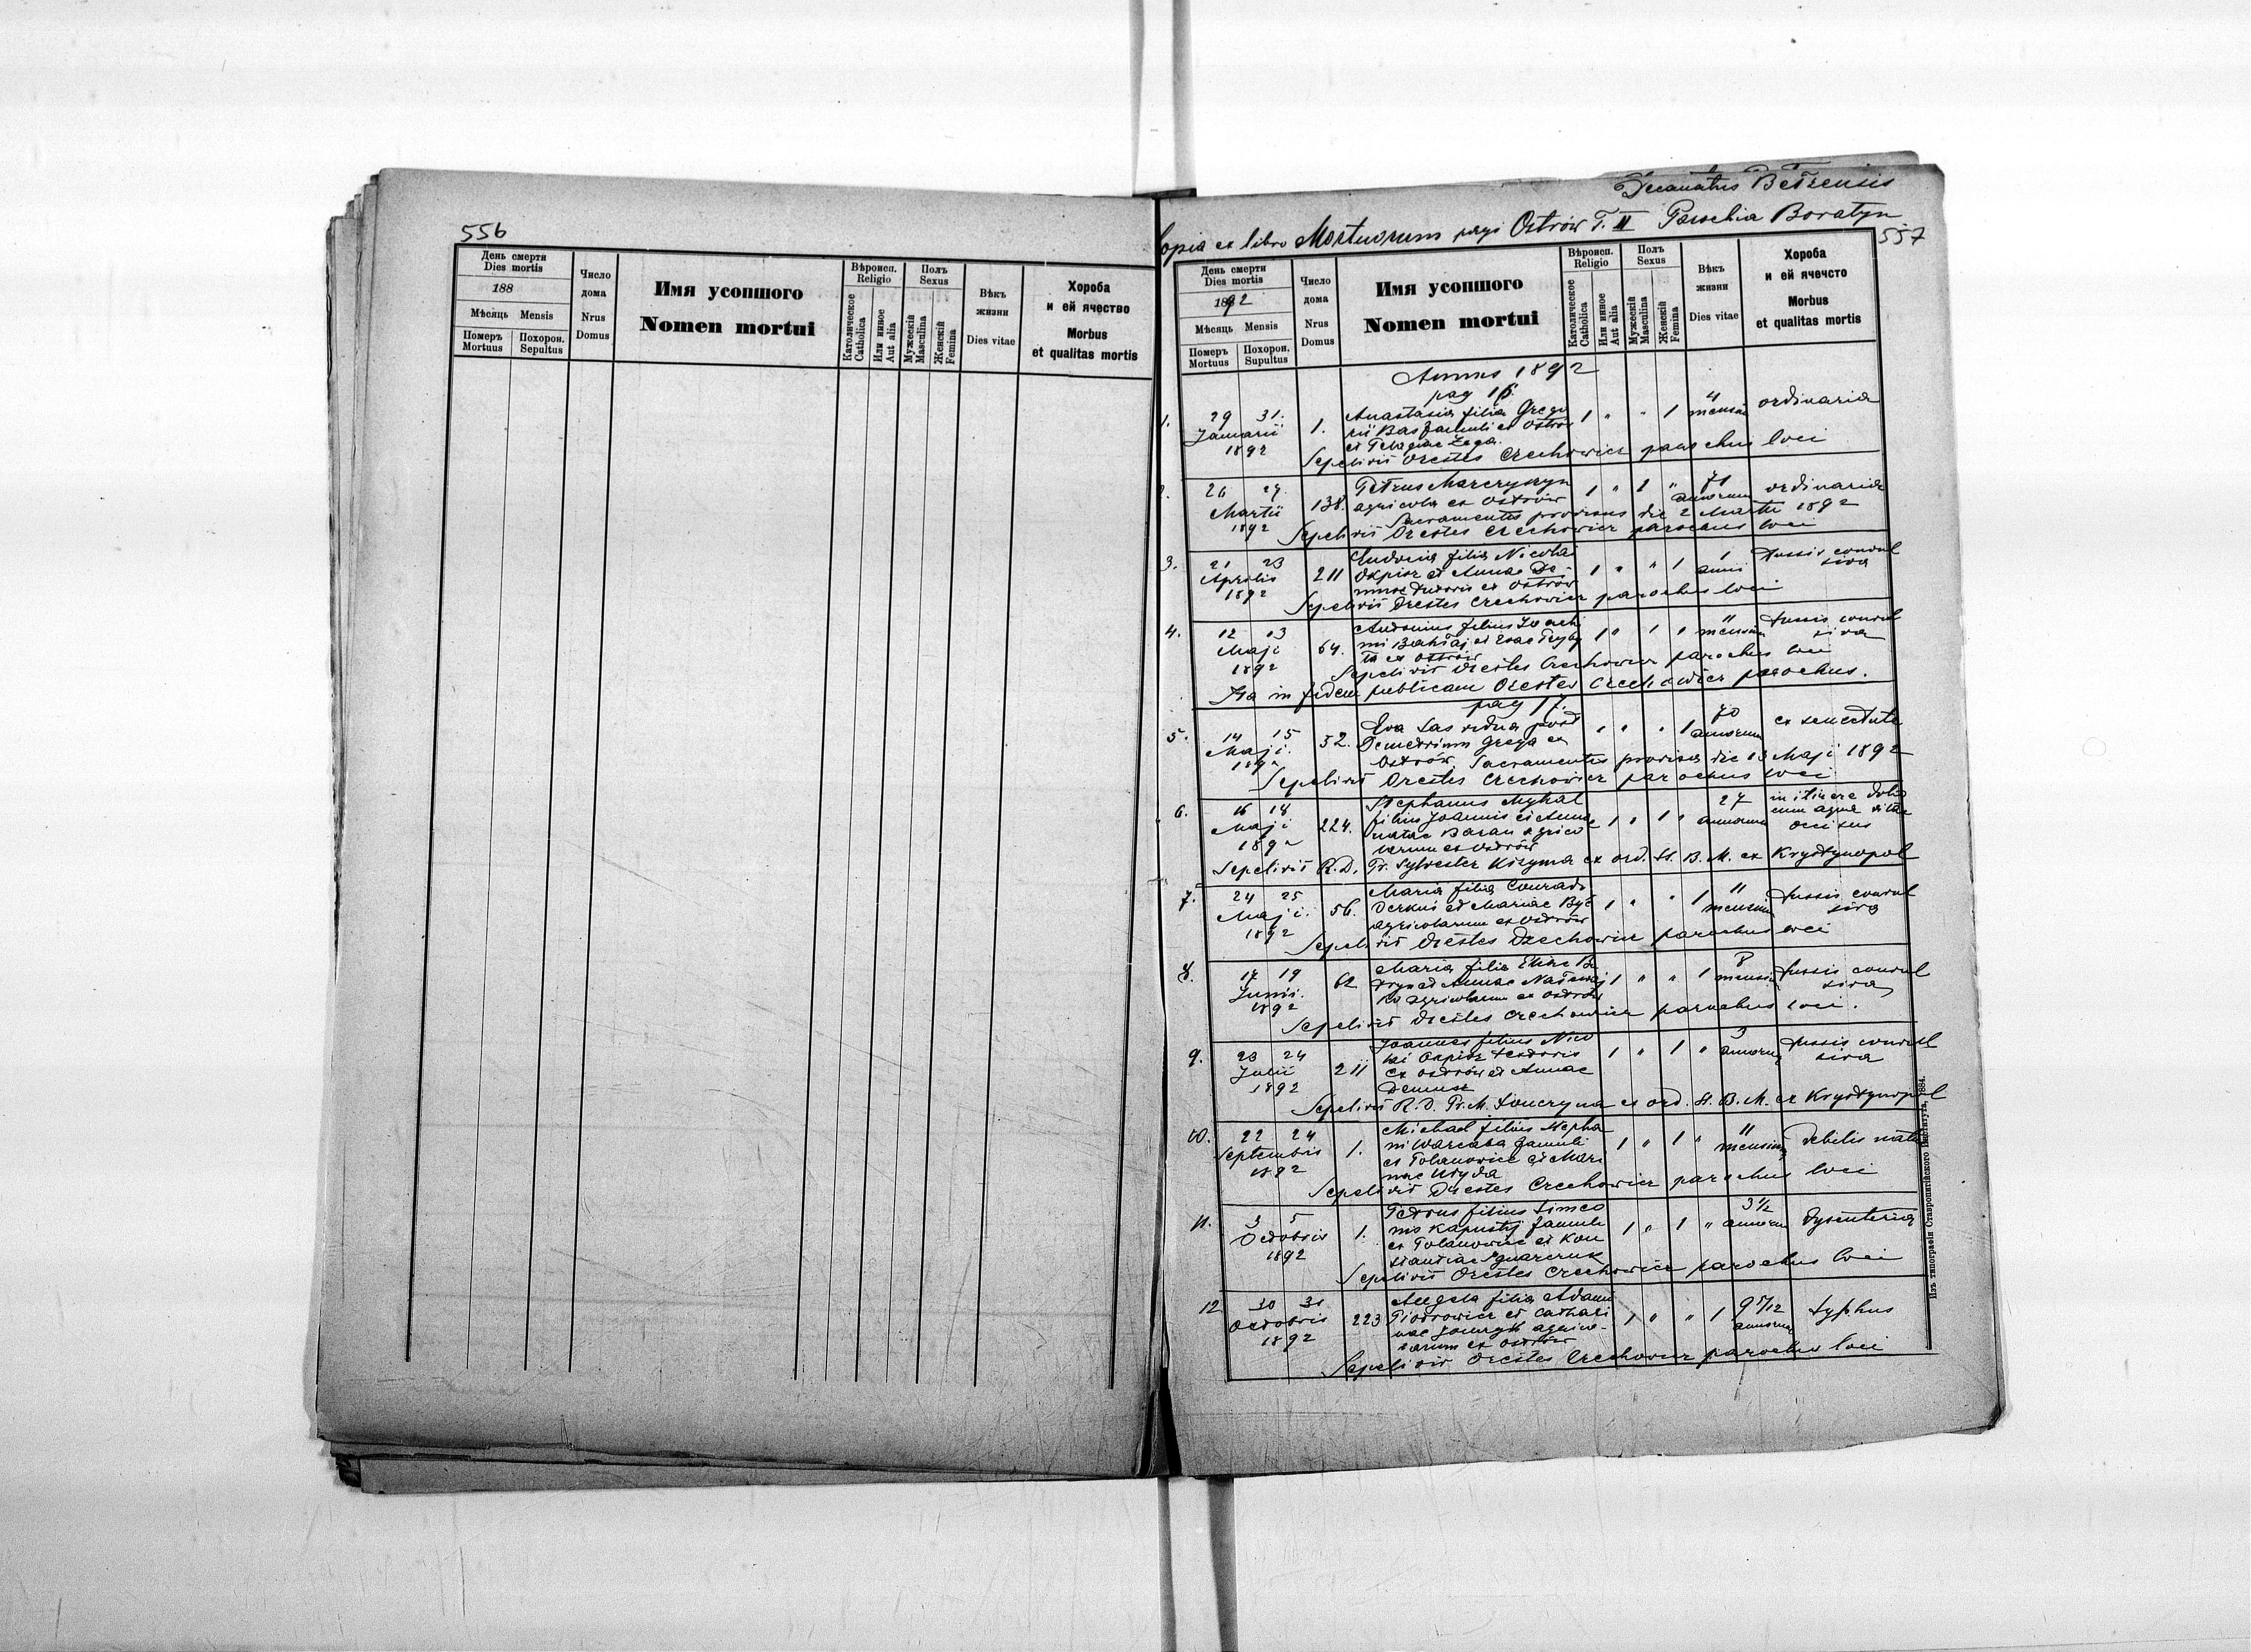 556
День смерти
Dies mortis
188
Мѣсяць Mensis
Померъ Mortuus
Похорон. Sepultus
Число дома
Nrus Domus
Имя усопшого
Nomen mortui
Вѣроисп.
Religio
Католическое Catholica
Или инное Aut alia
Полъ
Sexus
Мужескій Masculina
Женскій Femina
Вѣкъ жизни
Dies vitae
Хороба
и ей ячество
Morbus
et qualitas mortis
Decanatus Bełzensis
Copia ex libro Mortuorum pagi Ostrów T. II Parochia Boratyn
557
День смерти
Dies mortis
1892
Мѣсяць Mensis
Померъ Mortuus
Похорон. Supultus
Число дома
Nrus Domus
Имя усопшого
Nomen mortui
Вѣроисп.
Religio
Католическое Catholica
Или инное Aut alia
Полъ
Sexus
Мужескій Masculina
Женскій Femina
Вѣкъ жизни
Dies vitae
Хороба
и ей ячечсто
Morbus
et qualitas mortis
Annus 1892
pag 16.
1. 29 31. Januarii 1892 1. Anastasia filia Grego
rii Bas famuli ex Ostrów
et Pelagiae Zega. 1 " " 1 4 mensium ordinaria
Sepelivit Orestes Czechowicz parochus loci
2. 26 27. Martii 1892 138. Petrus
agricola ex Ostrów 1 " 1 " 71 annorum ordinaria
Sacramentis provisus die 2 Martii 1892
Sepelivit Orestes Czechowicz parochus loci
3. 21 23 Aprilis 1892 211 Eudocia filia Nicolai
Okpisz et Annae De-
musz ex Ostrów 1 " " 1 1 anni tussis convul
siva
Sepelivit Orestes Czechowicz parochus loci
4. 12 13 Maji 1892 64. Antonius filius Joachi
mi et Evae
ex Ostrów 1 " 1 " 11 mensium tussis convul
siva
Sepelivit Orestes Czechowicz parochus loci
Ita in fidem publicam Orestes Czechowicz parochus.
pag 17.
5. 14 15 Maji. 1892 52. Eva Sas vidua post
Demetrium Grega ex
Ostrów. 1 " " 1 70 annorum ex senectute
Sacramentis provisa die 13 Maji 1892
Sepelivit Orestes Czechowicz parochus loci
6. 16 18 Maji 1892 224. Stephanus Myhal
filius Joannis et Annae
natae Baran agrico
larum ex Ostrów 1 " 1 " 27 annorum in itinere
cum aqua vitae
occisus
Sepelivit R.D. Pr. Sylvester Kizyma ex ord. St. B. M. ex Krystynopol
7. 24 25 Maji. 1892 56. Maria filia Conradi
Derkus et Mariae Być
agricolarum ex Ostrów 1 " " 1 11 mensium tussis convul
siva
Sepelivit Orestes Czechowicz parochus loci
8. 17 19 Junii. 1892 62 Maria filia Eliae
et Annae
agricolarum ex Ostrów 1 " " 1 8 mensium tussis convul
siva
Sepelivit Orestes Czechowicz parochus loci.
9. 23 24 Julii 1892 211 Joannes filius Nico
lai Okpisz textoris
ex Ostrów et Annae
Demusz 1 " 1 " 3 annorum tussis convul
siva
Sepelivit R.D. Pr. M. Łonczyna ex ord. St. B. M. ex Krystynopol
10. 22 24 Septembris 1892 1. Michael filius Stepha
ni Warcaba famuli
ex Polanowice et Mari
nae 1 " 1 " 11 mensium debilis natu
Sepelivit Orestes Czechowicz parochus loci
11. 3 5 Octobris 1892 1. Petrus filius Simeo
nis Kapusty famuli
ex Polanowice et Kon
stantiae Ignarczuk 1 " 1 " 3 1/2 annorum dysenteria
Sepelivit Orestes Czechowicz parochus loci
12. 30 31 Octobris 1892 223 Angela filia Adami
Piotrowicz et Cathari
nae agrico-
larum ex Ostrów 1 " " 1 9 5/12 annorum typhus
Sepelivit Orestes Czechowicz parochus loci
Изъ типографіи Ставропигійского Института, 1884.